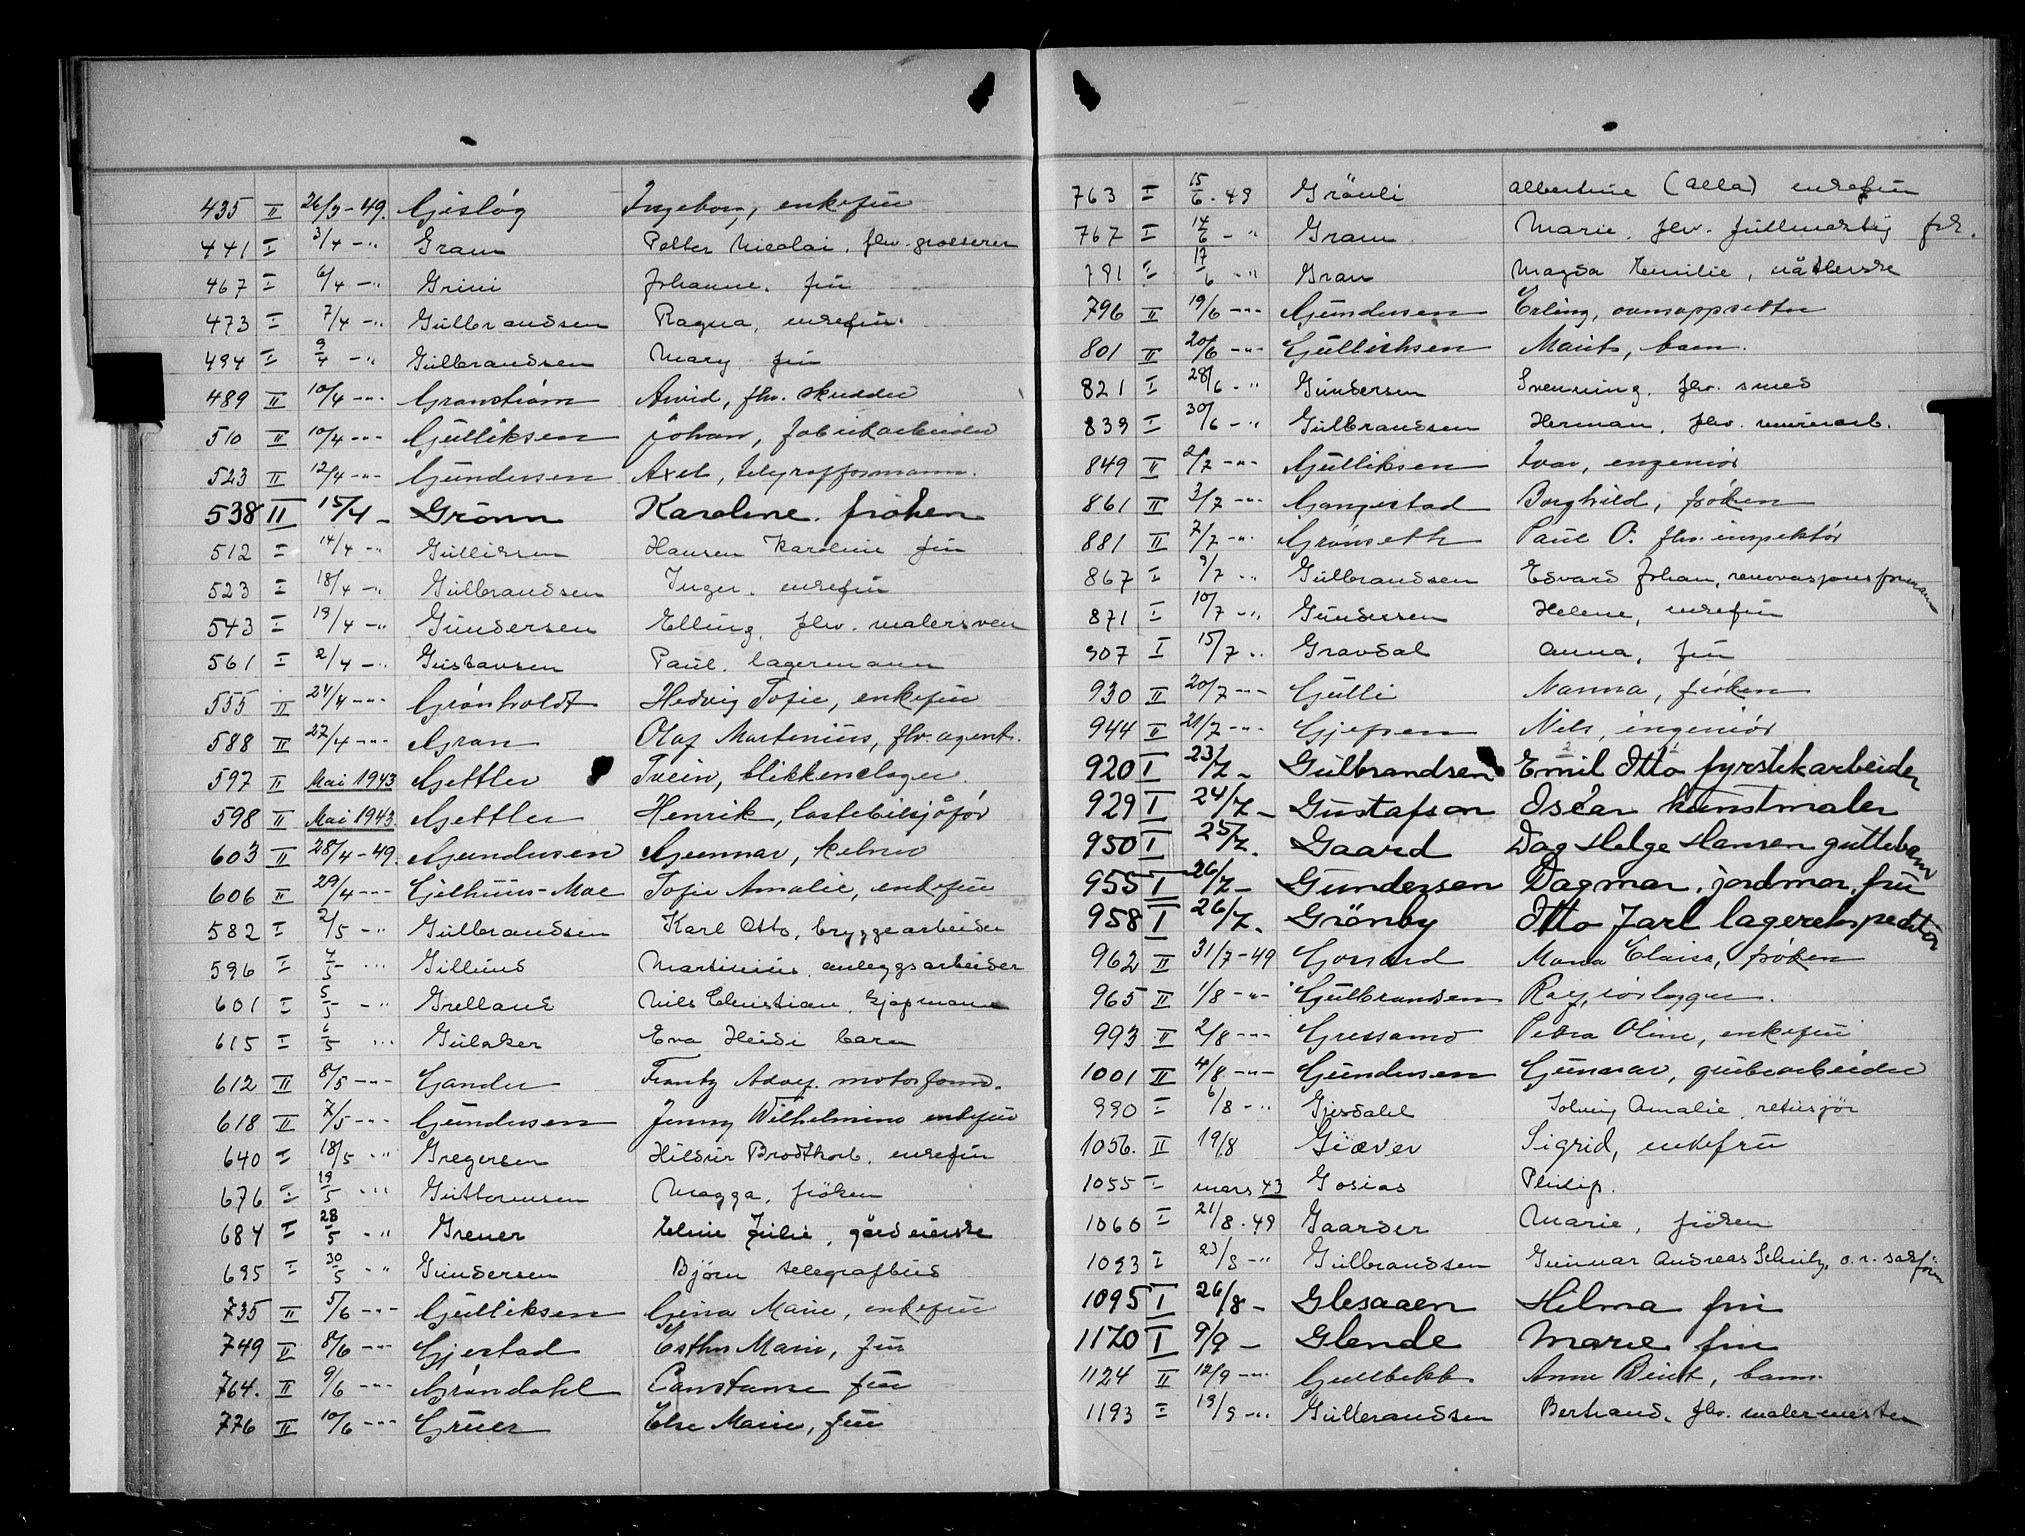 435 II 26/3-49. Gisløg Ingeborg, enkefru
441 I 3/4 -" Gram Petter Nicolai. fhv. grosserer
467 I 6/4 -" Grini Johanne. fru
473 I 7/4 -" Gulbrandsen Ragna, enkefru.
494 I 9/4 -" Gulbrandsen Mary fru
489 II 10/4 -"- Granstrøm Arvid, fhv. skredder
510 II 10/4 -"- Gulliksen Johan, fabrikarbeider
523 II 12/4 -"- Gundersen Axel, telegrafformann.
538 II 15/4 - Grønn Karoline. frøken
512 I 14/4 -" Gulliksen Hansen Karoline fru
523 I 18/4 -" Gulbrandsen Inger. enkefru
543 I 19/4 -" Gundersen Elling. fhv. malersven
561 I 2/4 -" Gustavsen Paul. lagermann
555 II 24/4 -"- Grønholdt Hedvig Sofie, enkefru
588 II 27/4 -"- Gran Olaf Martinius, fhv. agent.
597 II Mai 1943 Gettler Svein, blikkenslager
598 II Mai 1943 Gettler Henrik, lastebilsjåfør
603 II 28/4-49. Gundersen Gunnar, kelner
606 II 29/4 -"- Gjelhuus-Moe Sofie Amalie, enkefru
582 I 2/5 -" Gulbrandsen Karl Otto, bryggearbeider
596 I 4/5 -" Gillund Martinius, anleggsarbeider
601 I 5/5 -" Grelland Nils Christian, kjøpmann
615 I 6/5 -" Gulaker Eva Heidi barn
612 II 8/5 -"- Gander Frantz Adolf. motorform.
618 II 7/5 -"- Gundersen Jenny Wilhelmine enkefru
640 I 18/5 " Gregersen Hildur Brodtkorb. enkefru
676 I 19/5 " Guttormsen Magga, frøken
684 I 28/5 -" Greuer Julie, gårdeierske
695 I 30/5 -" Gundersen Bjørn telegrafbud
735 II 5/6 -"- Gulliksen Gina Marie, enkefru
749 II 8/6 -"- Gjestad Esther Marie, fru
764. II 9/6 -"- Grøndahl Constance fru
776 II 10/6 -"- Gruer Else Marie, fru
763 I 15/6 . 49 Grönli Albertine (Alla) enkefru
767 I 14/6 - " Gram Marie. fhv. fullmektig frk.
791 I 17/6 -" Gran Magda Emilie, nåtlerske
796 II 19/6 -"- Gundersen Erling, ovnsoppsetter
801 II 20/6 -"- Gullichsen Marit, barn.
821 I 28/6 -" Gundersen Svenning. fhv. smed
839 I 30/6 -" Gulbrandsen Herman, fhv. murerarb.
849 II 2/7 -"- Gulliksen Ivar, ingeniør
861 II 3/7 -"- Gangestad Borghild, frøken
881 II 7/7 -"- Grønseth Paul O. fhv. inspektør
867 I 9/7 " Gulbrandsen Edvard Johan, renovasjonsformann
871 I 10/7 -" Gundersen Helene, enkefru
907 I 15/7 " Gravdal Anna, fru
930 II 20/7 -"- Gulli Nanna, frøken
944 II 21/7 -"- Gjepsen Nils, ingeniør
920 I 23/7 - Gulbrandsen Emil Otto fyrstikarbeider
929 I 24/7 - Gustafson Oscar kunstmaler
950 I 25/7. Gaard Dag Helge Hansen guttebarn
955 I 26/7 - Gundersen Dagmar. jordmor. fru
958 I 26/7. Grönby Otto Jarl lagerekspeditör
962 II 31/7-49 Gossard Clara, frøken
965 II 1/8 -"- Gulbrandsen Roy, rørlegger.
993 II 2/8 -"- Gressamo Petra Oline, enkefru
1001 II 4/8 -"- Gundersen Gunnar, grubearbeider
990 I 6/8 -" Gjesdahl Solveig Amalie, retusjør
1056. II 19/8 Giæver Sigrid, enkefru
1055 I mars 43 Gosias Philip.
1060 I 21/8 . 49 Gaarder Marie, frøken
1093 I 23/8 -" Gulbrandsen Gunnar Andreas Schultz, o.r. sakfører
1095 I 26/8 - Glesaaen Hilma fru
1170 I 9/9 - Glende Marie fru
1124 II 12/9 -"- Gullbekk Anne Berit, barn.
1193 I 19/9 -" Gulbrandsen Bertrand. fhv. malermester